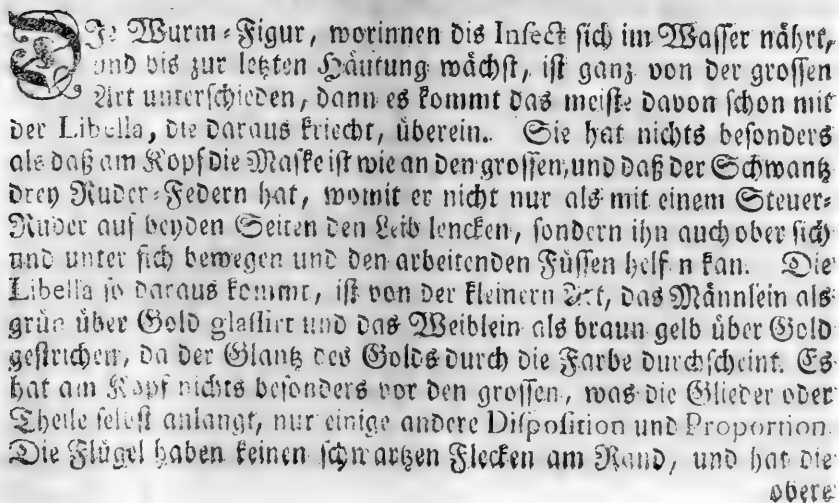 DIe Wurm-Figur, worinnen dis Insect sich im Wasser nährt,
und bis zur letzten Häutung wächst, ist ganz von der grossen
Art unterschieden, dann es kommt das meiste davon schon mit
der Libella, die daraus kriecht, überein. Sie hat nichts besonders
als daß am Kopf die Maske ist wie an den grossen, und daß der Schwantz
drey Ruder-Federn hat, womit er nicht nur als mit einem Steuer-
Ruder auf beyden Seiten den Leib lencken, sondern ihn auch ober sich
und unter sich bewegen und den arbeitenden Füssen helfen kan. Die
Libella so daraus kommt, ist von der kleinern Art, das Männlein als
grün über Gold glassirt und das Weiblein als braun gelb über Gold
gestrichen, da der Glantz des Golds durch die Farbe durchscheint. Es
hat am Kopf nichts besonders vor den grossen, was die Glieder oder
Theile selbst anlangt, nur einige andere Disposition und Proportion.
Die Flügel haben keinen schwartzen Flecken am Rand, und hat die
obere